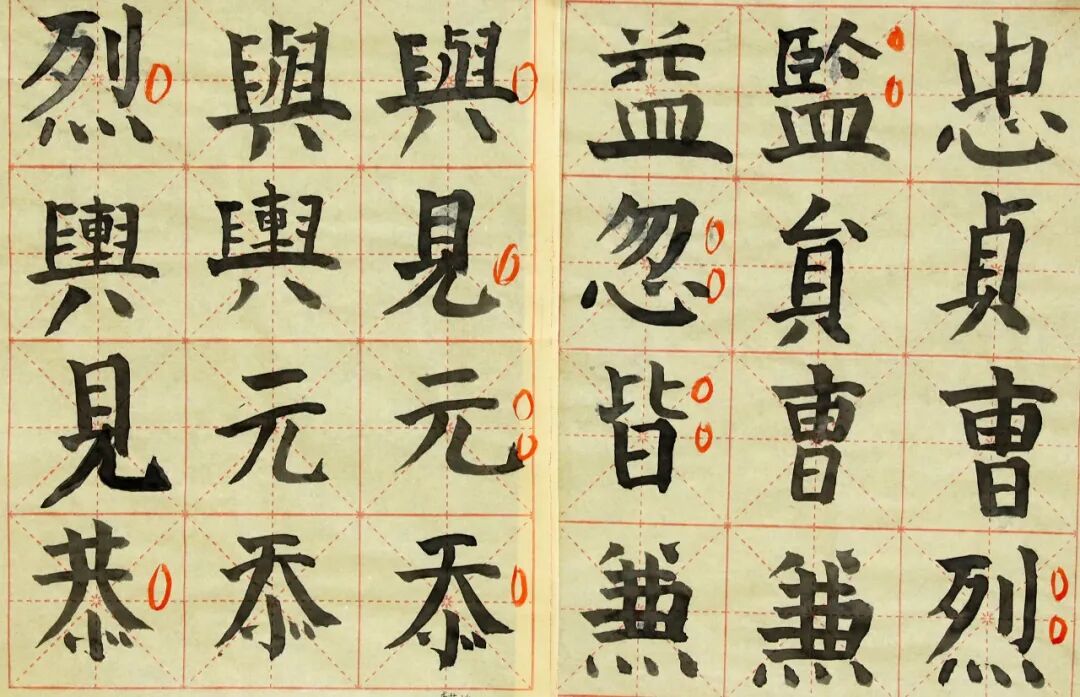 烈與與
輿輿見
見元元
恭忝忝
益監忠
忽貟貞
皆曺曺
兼兼烈